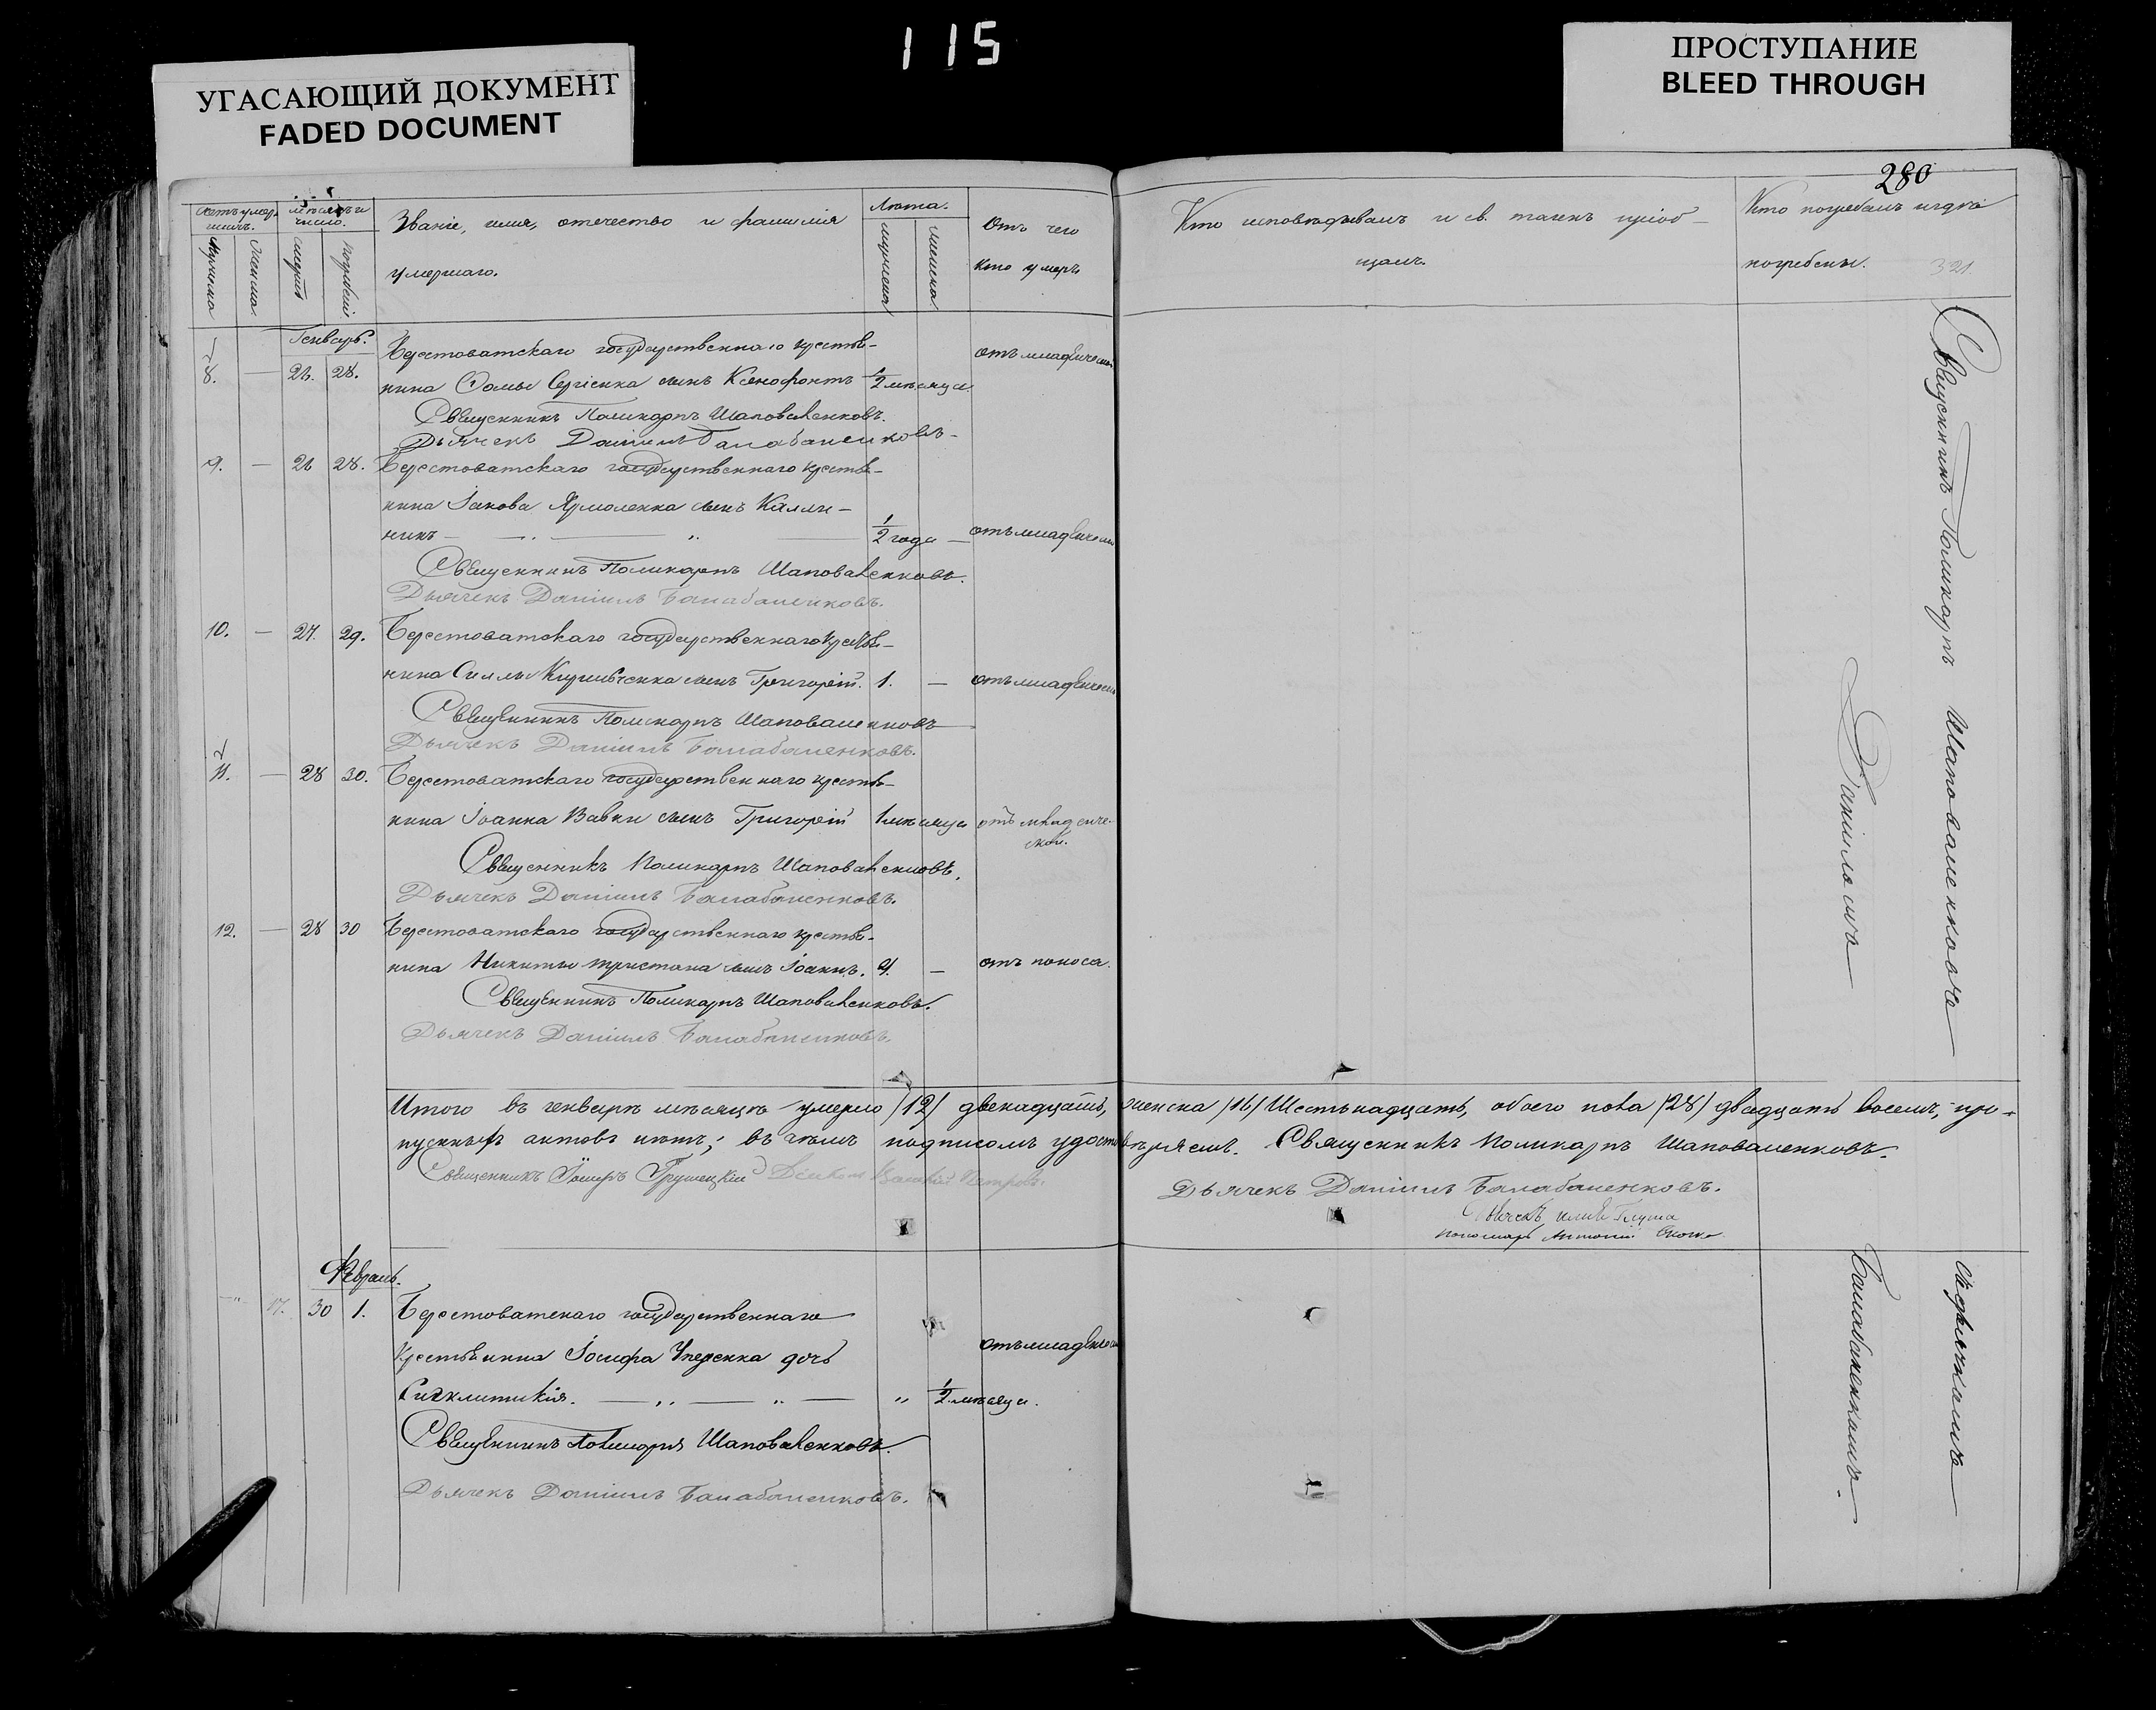 115
УГАСАЮЩИЙ ДОКУМЕНТ
FADED DOCUMENT
ПРОСТУПАНИЕ
BLEED THROUGH
280
321.
Счетъ умер-
шихъ.
Мѣсяцъ и
число.
Званіе, имя, отечество и фамилія
умершаго.
Лѣта.
Отъ чего
кто умеръ
Кто исповѣдывалъ и св. таинъ пріоб-
щалъ.
Кто погребалъ и гдѣ
погребены.
Мужеска
Женска
смерти
погребенія
мужеска
женска
Генварь.
8. — 26. 28. Берестоватскаго государственнаго крестья-
нина Сергіенка сынъ Ксенофонтъ 1/2 мѣсяца
отъ младенческой
Священникъ Поликарпъ Шаповаленковъ.
Дьячекъ Даніилъ Балабаненковъ.
9. — 26 28. Берестоватскаго государственнаго крестья-
нина Іакова Ярмоленка сынъ Калли-
никъ — „ — „ — 1/2 года — отъ младенческой
Священникъ Поликарпъ Шаповаленковъ.
Дьячекъ Даніилъ Балабаненковъ.
10. — 27. 29. Берестоватскаго государственнаго крестья-
нина Силы Кириченка сынъ Григорій. 1. — отъ младенческой
Священникъ Поликарпъ Шаповаленковъ
Дьячекъ Даніилъ Балабаненковъ.
11. — 28 30. Берестоватскаго государственнаго крестья-
нина Іоанна Вавки сынъ Григорій 1 мѣсяца отъ младенче-
ской.
Священникъ Поликарпъ Шаповаленковъ.
Дьячекъ Даніилъ Балабаненковъ.
12. — 28 30 Берестоватскаго государственнаго крестья-
нина Никиты Тристана сынъ Іоаннъ. 4. — отъ поноса.
Священникъ Поликарпъ Шаповаленковъ.
Дьячекъ Даніилъ Балабаненковъ.
Священникъ Поликарпъ Шаповаленковъ
Даніиломъ
Итого въ генварѣ мѣсяцѣ умерло /12/ двенадцать, женска /16/ Шестьнадцать, обоего пола /28/ двадцать восемь, про-
пускныхъ актовъ нѣтъ; въ чемъ подписомъ удостовѣряемъ. Священникъ Поликарпъ Шаповаленковъ.
Священникъ Іосифъ Грушецкій Діаконъ Василій Петровъ.
Дьячекъ Даніилъ Балабаненковъ.
Дьячекъ
пономарь Антоній
Февраль.
— 17. 30 1. Берестоватскаго государственнаго
крестьянина Іосифа Чперенка дочь
Сигклитикія. — „ — „ — „ 1/2 мѣсяца.
отъ младенческой
Священникъ Поликарпъ Шаповаленковъ.
Дьячекъ Даніилъ Балабаненковъ.
Балабаненкомъ.